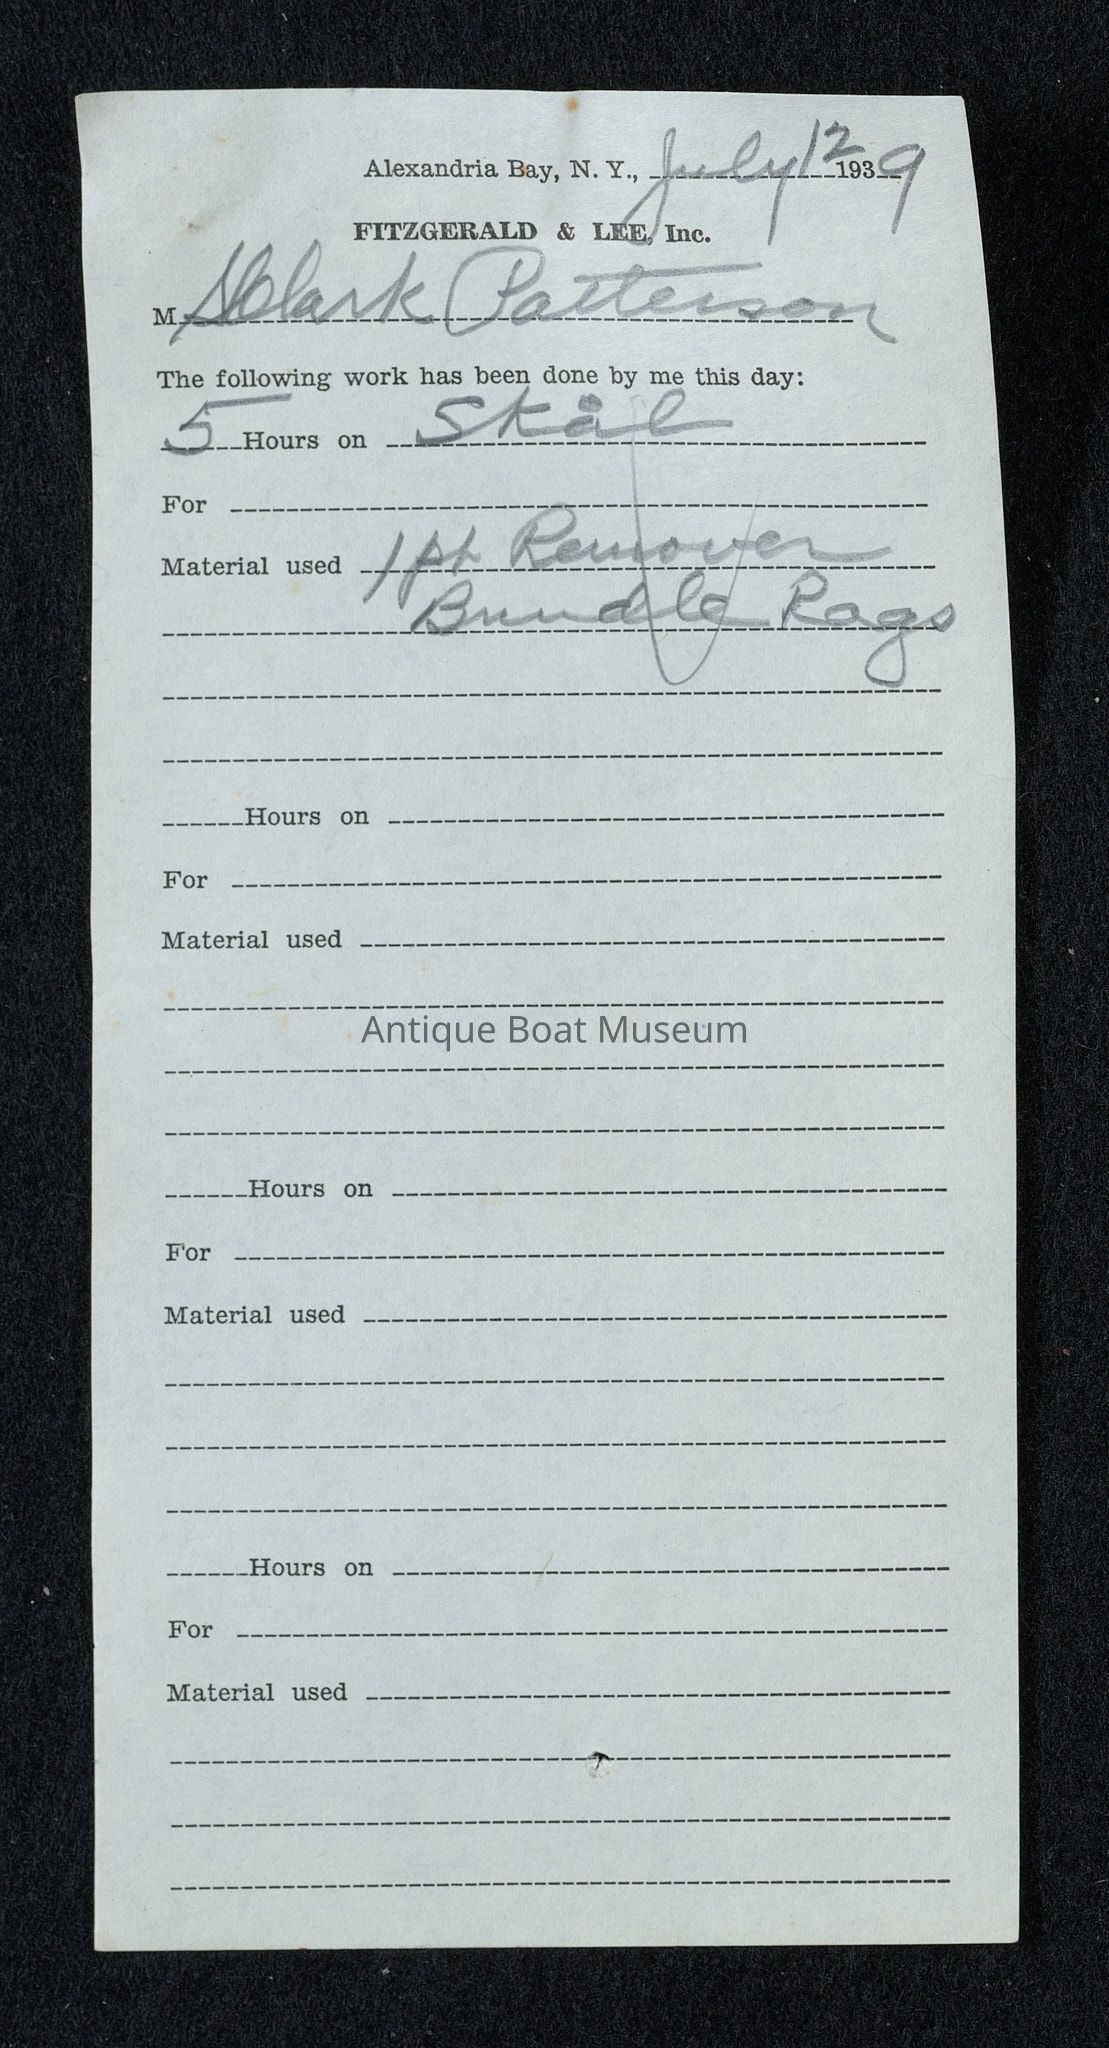 Alexandria Bay, N. Y., July 12 1939
FITZGERALD & LEE, Inc.
M Clark Patterson
The following work has been done by me this day:
5 Hours on Skål
For
Material used 1 pt Remover
Bundle Rags
Hours on
For
Material used
Antique Boat Museum
Hours on
For
Material used
Hours on
For
Material used